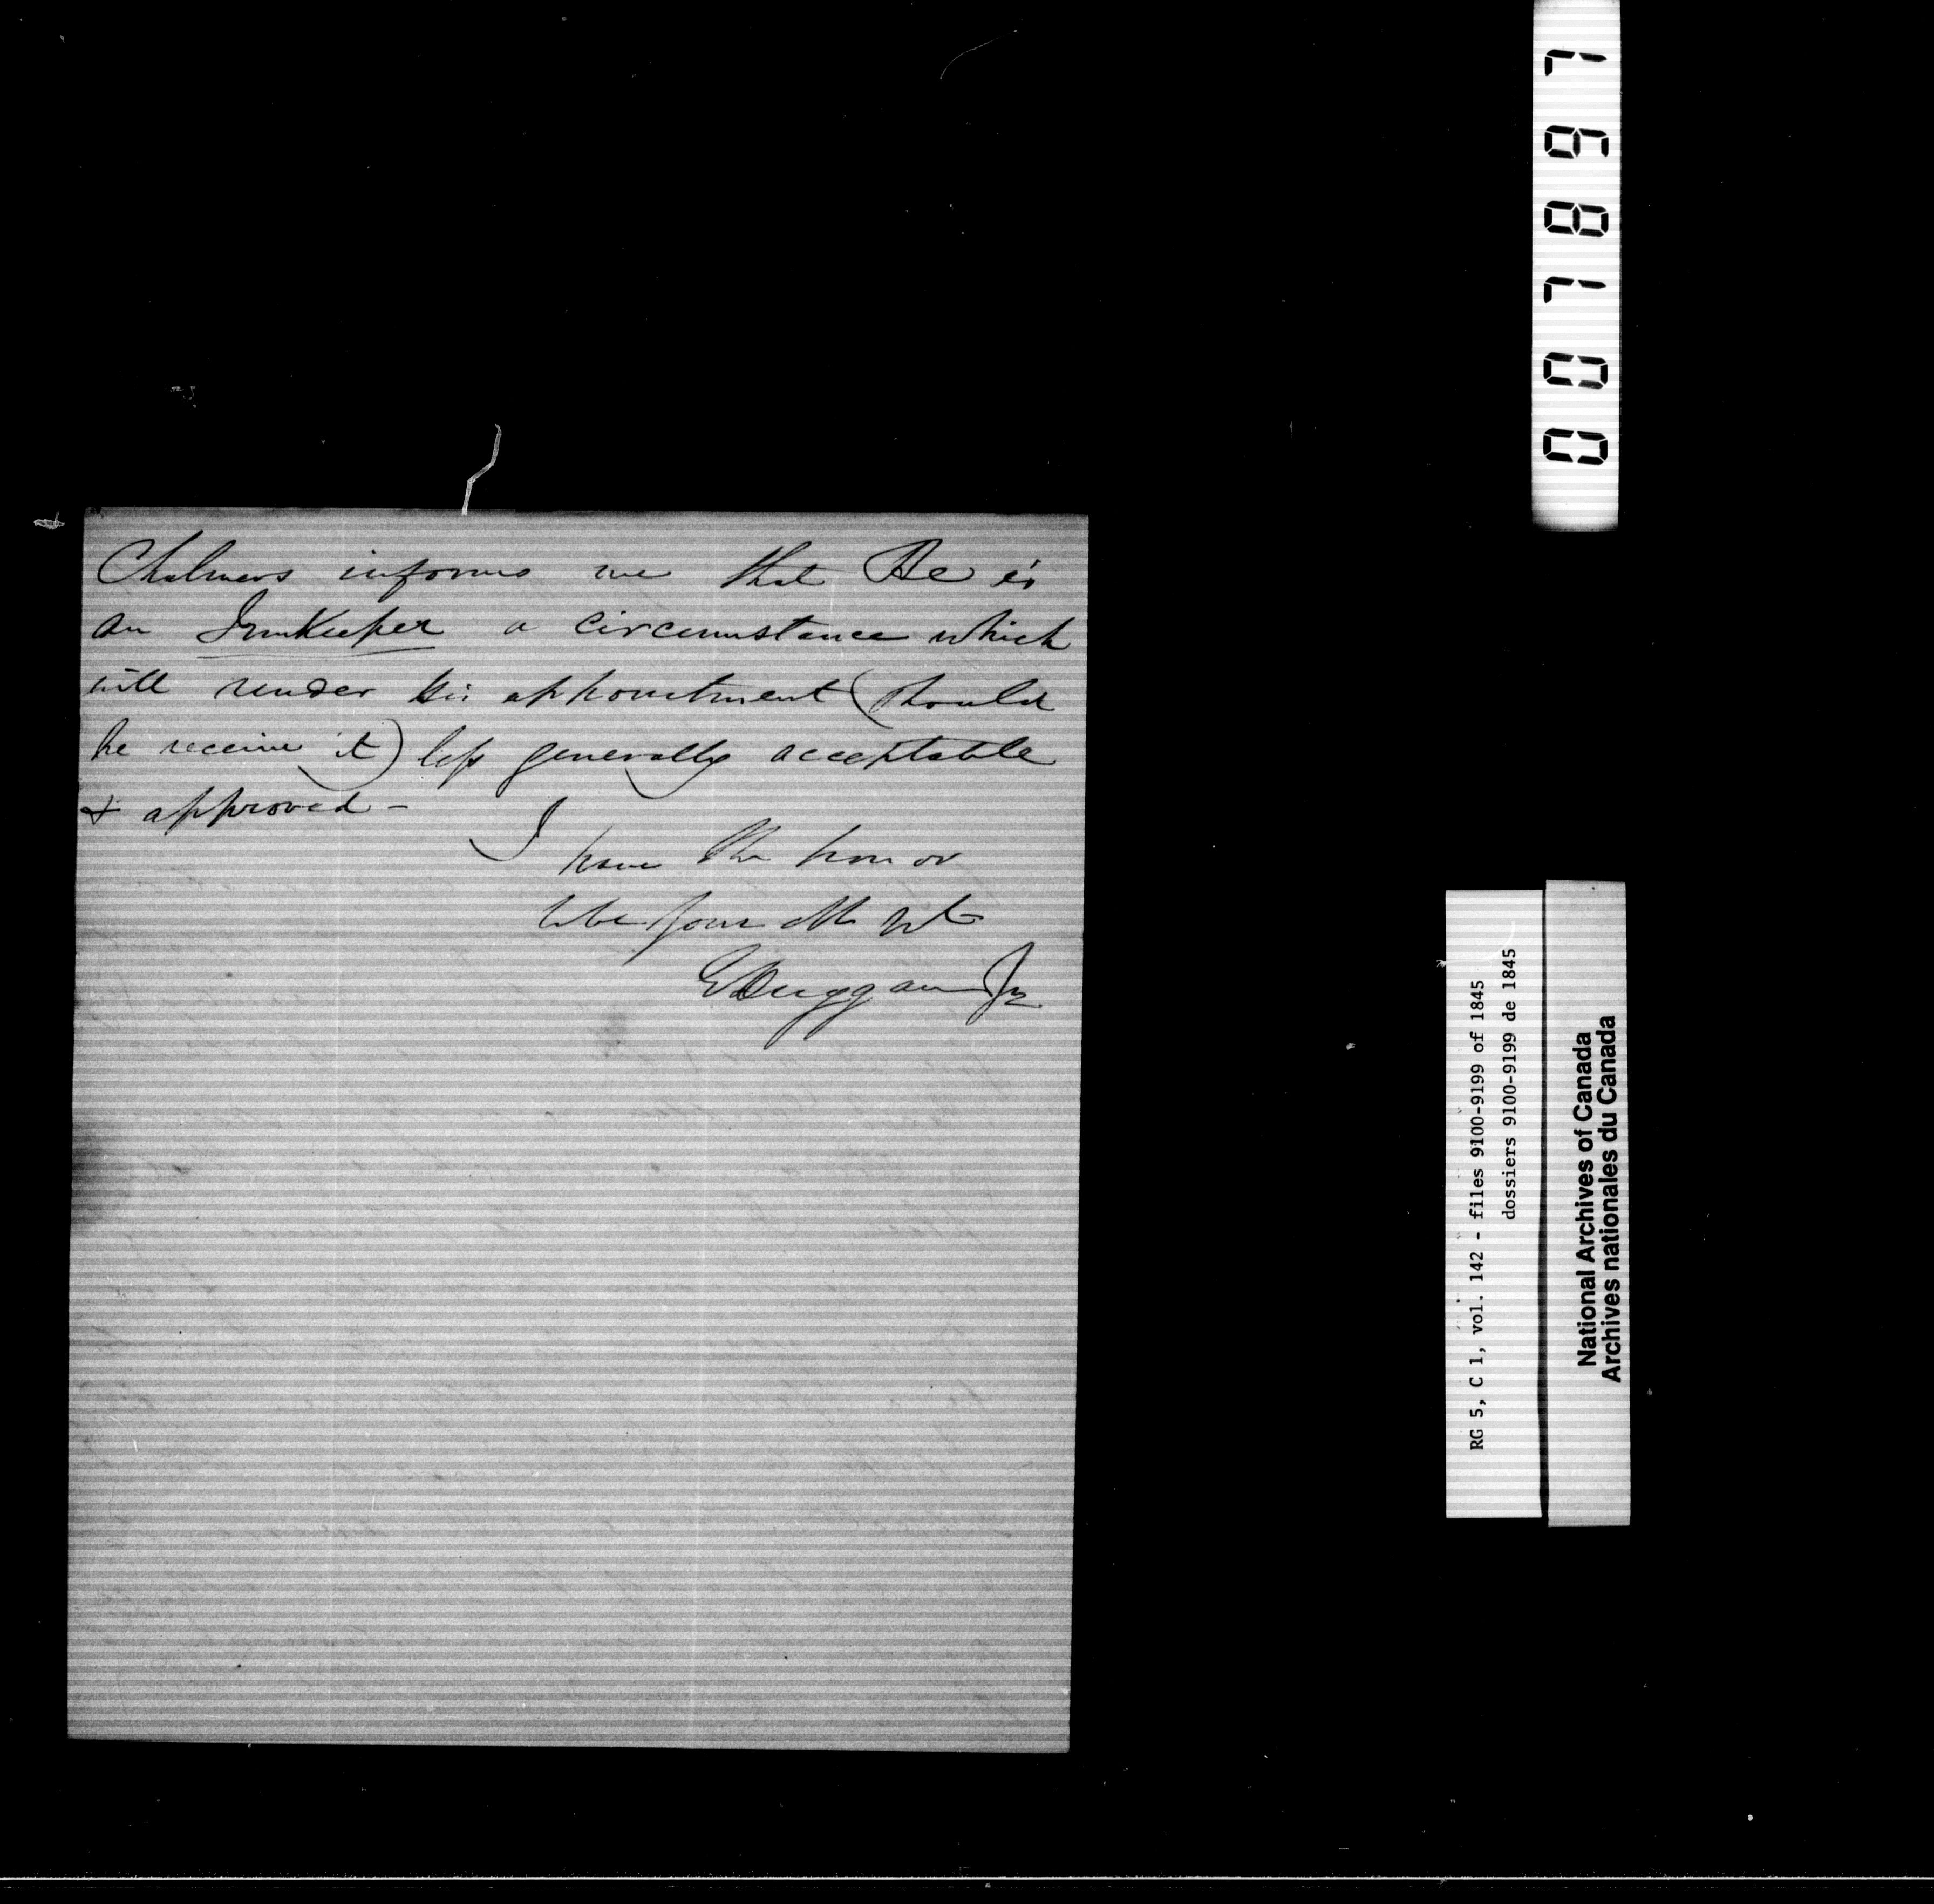 Chalmers informs me that He is
an InnKeeper a circumstance which
will render his appointment (should
he receive it) less generally acceptable
& approved -
I have the honor
to be your Ob St
GDuggan Jr
001897
RG 5, C 1, vol. 142 - files 9100-9199 of 1845
dossiers 9100-9199 de 1845
National Archives of Canada
Archives nationales du Canada